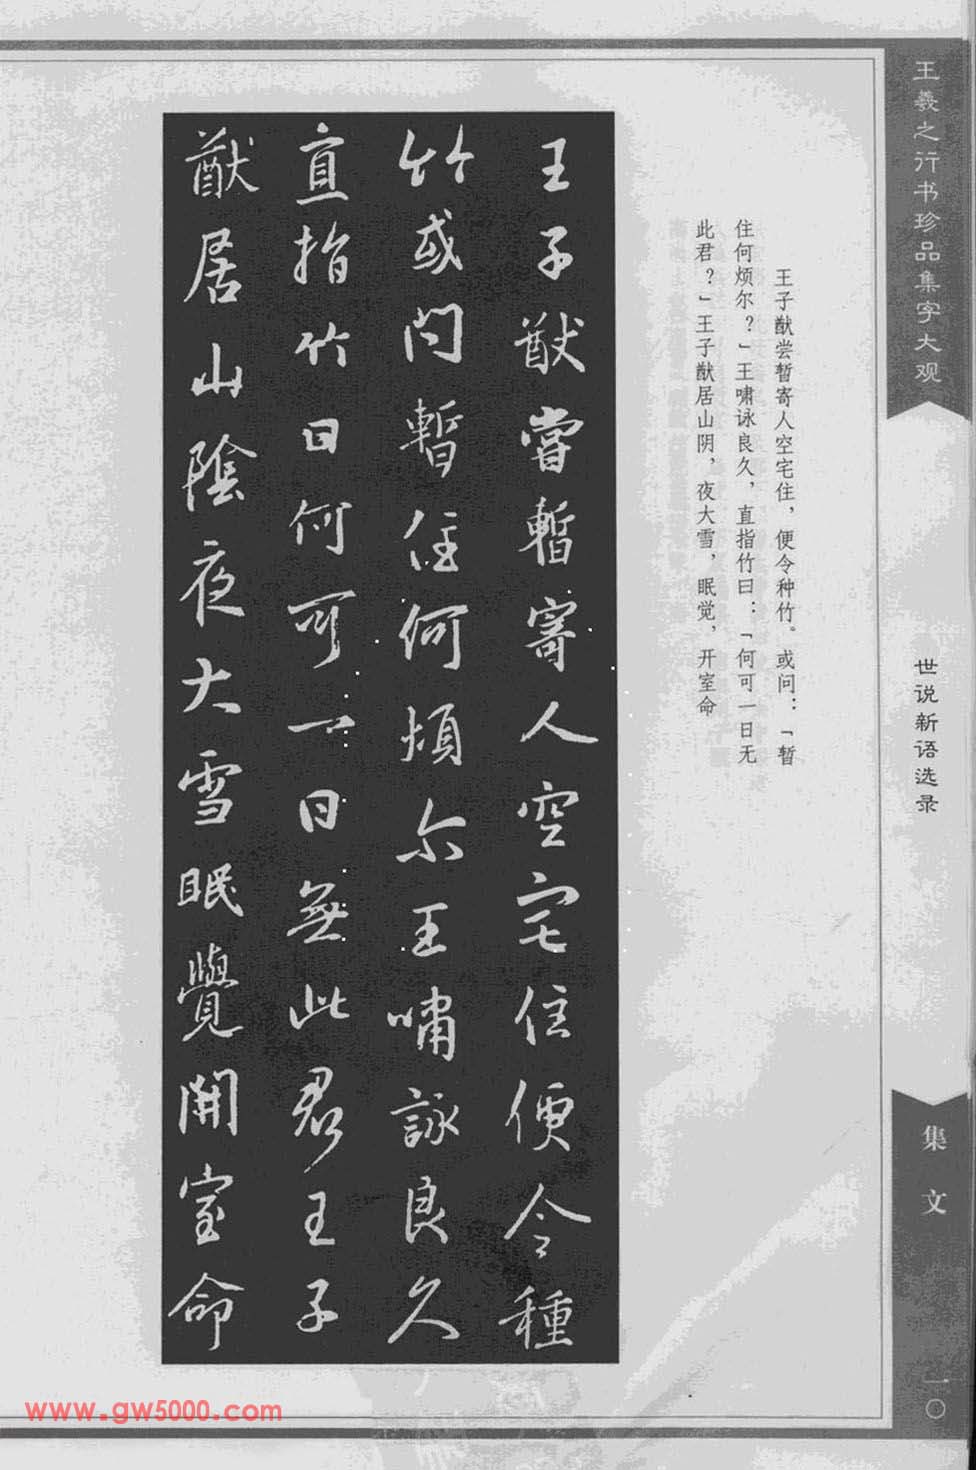 王羲之行书珍品集字大观
世说新语选录
集文
一〇
王子猷尝暂寄人空宅住，便令种竹。或问：「暂
住何烦尔？」王啸咏良久，直指竹曰：「何可一日无
此君？」王子猷居山阴，夜大雪，眠觉，开室命
王子猷嘗暫寄人空宅住便令種
竹或问暫住何煩尔王嘯詠良久
直指竹曰何可一日無此君王子
猷居山陰夜大雪眠覺開室命
www.gw5000.com